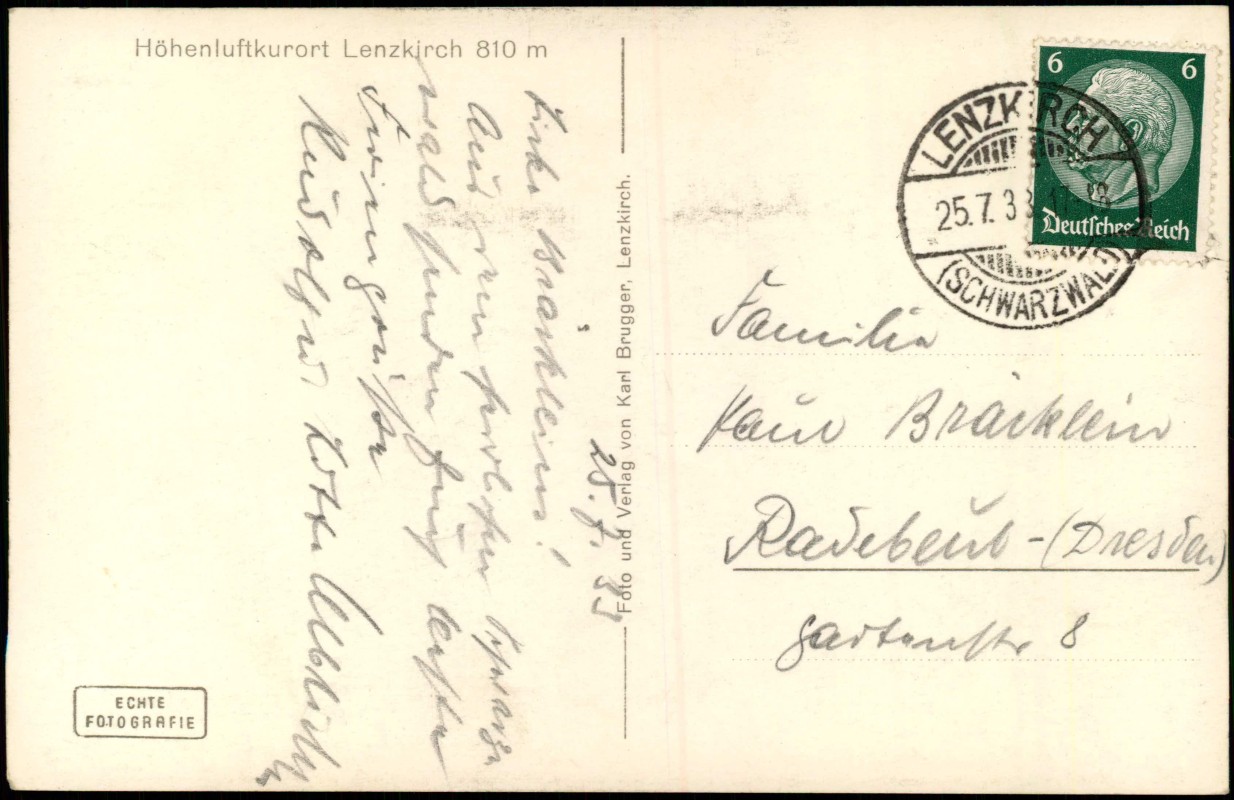 Höhenluftkurort Lenzkirch 810 m
25. 7. 33
Liebe Bräckleins!
Aus dem herrlichen Schwarz-
wald senden Euch beste
Feriengrüße
Rudolf u. Lotte
Foto und Verlag von Karl Brugger, Lenzkirch.
ECHTE
FOTOGRAFIE
6 6
Deutsches Reich
LENZKIRCH
25.7.33
(SCHWARZWALD)
Familie
Paul Bräcklein
Radebeul-(Dresden)
Gartenstr 8